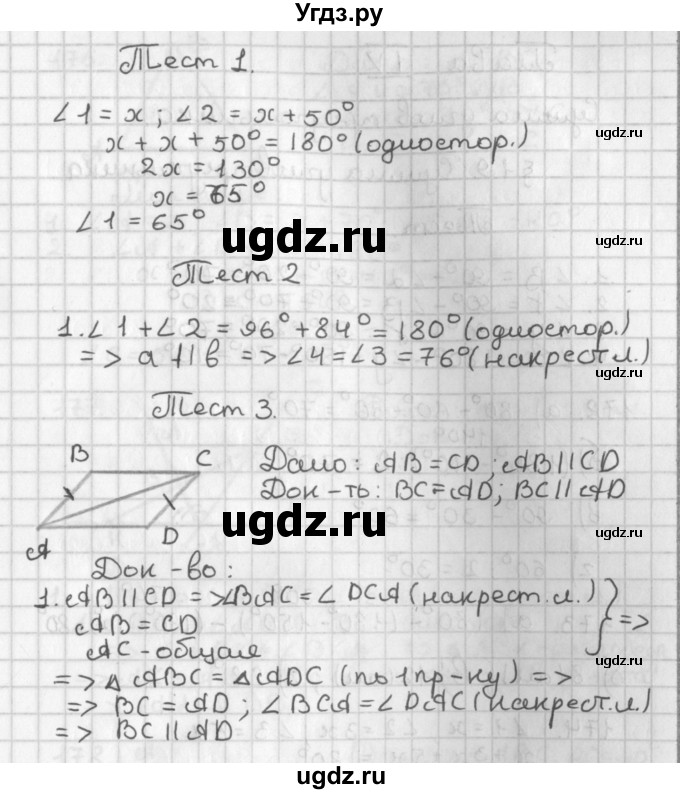 Угдз.ру
Тест 1.
∠1 = x ; ∠2 = x + 50°
x + x + 50° = 180° (одностор.)
2x = 130°
x = 65°
∠1 = 65°
ugdz.ru
Тест 2
1. ∠1 + ∠2 = 96° + 84° = 180° (одностор.)
=> a || b => ∠4 = ∠3 = 76° (накрест.л.)
ugdz.ru
Тест 3.
B C
A D
Дано: AB = CD ; AB || CD
Док-ть: BC = AD; BC || AD
ugdz.ru
Док-во:
1. AB || CD => ∠BAC = ∠DCA (накрест.л.)
AB = CD
AC - общая
} =>
=> △ABC = △ADC (по 1 пр-ку) =>
=> BC = AD ; ∠BCA = ∠DAC (накрест.л.)
=> BC || AD
ugdz.ru
ugdz.ru